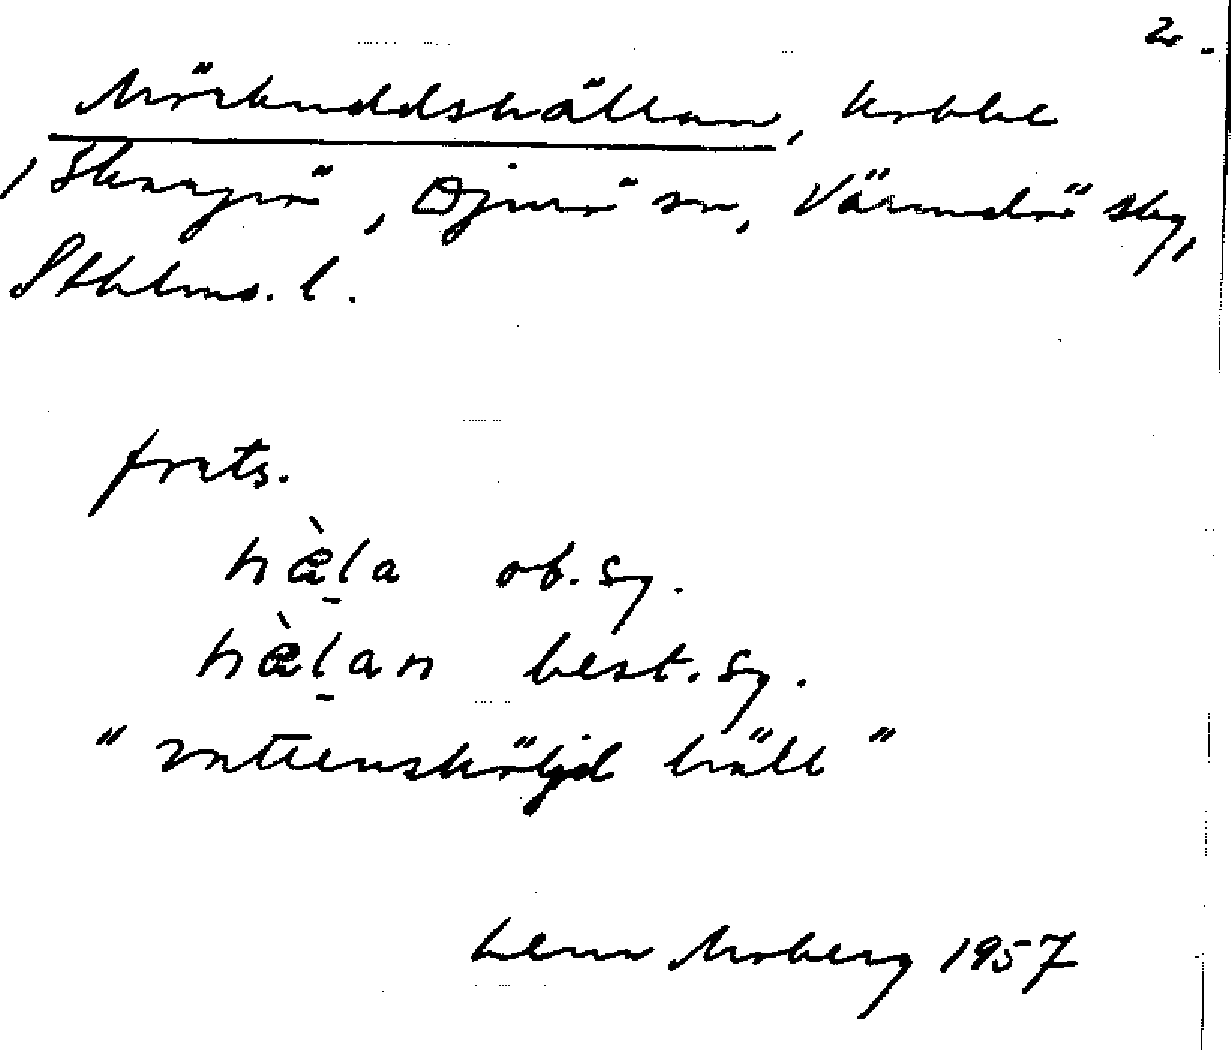 2.
Mörtuddshällan, kobbe
/ Skarprö, Djurö sn, Värmdö skg,
Sthlms. l.
forts.
hæ̀l̠a ob. sg.
hæ̀l̠an best. sg.
" vattensköljd häll "
Lena Moberg 1957